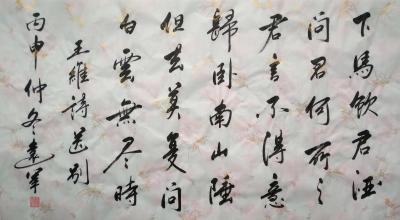 下馬飲君酒
問君何所之
君言不得意
歸卧南山陲
但去莫复問
白雲無尽時
王維詩送别
丙申仲冬